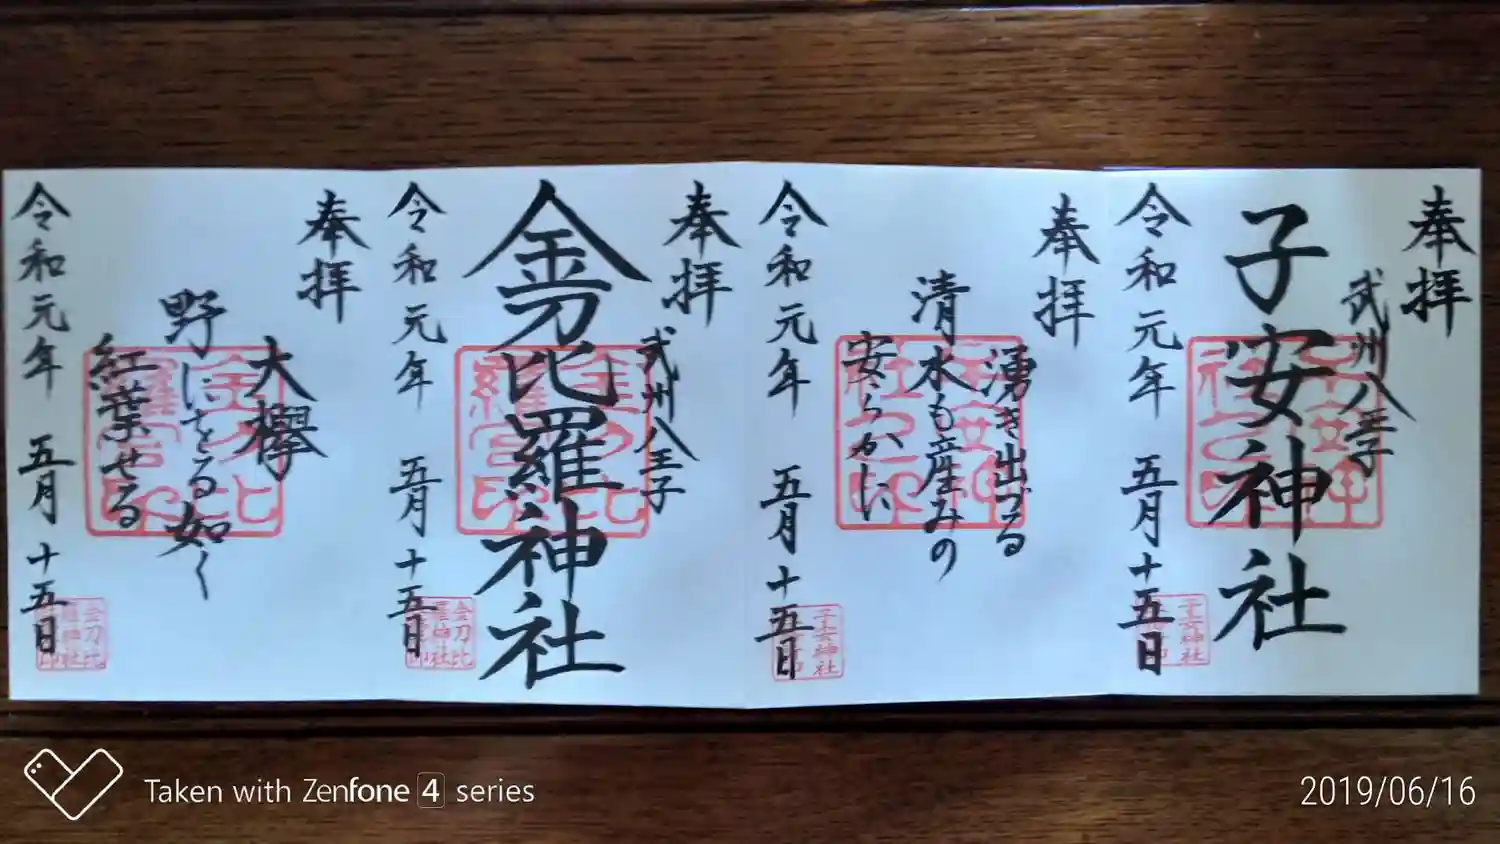 奉拝
武州八王子
子安神社
令和元年 五月十五日
子安神社
奉拝
湧き出づる
清水も産みの
安らかに
令和元年 五月十五日
子安神社
奉拝
武州八王子
金刀比羅神社
令和元年 五月十五日
金刀比羅神社
奉拝
大欅
野にをる如く
紅葉せる
令和元年 五月十五日
金刀比羅神社
Taken with Zenfone 4 series
2019/06/16